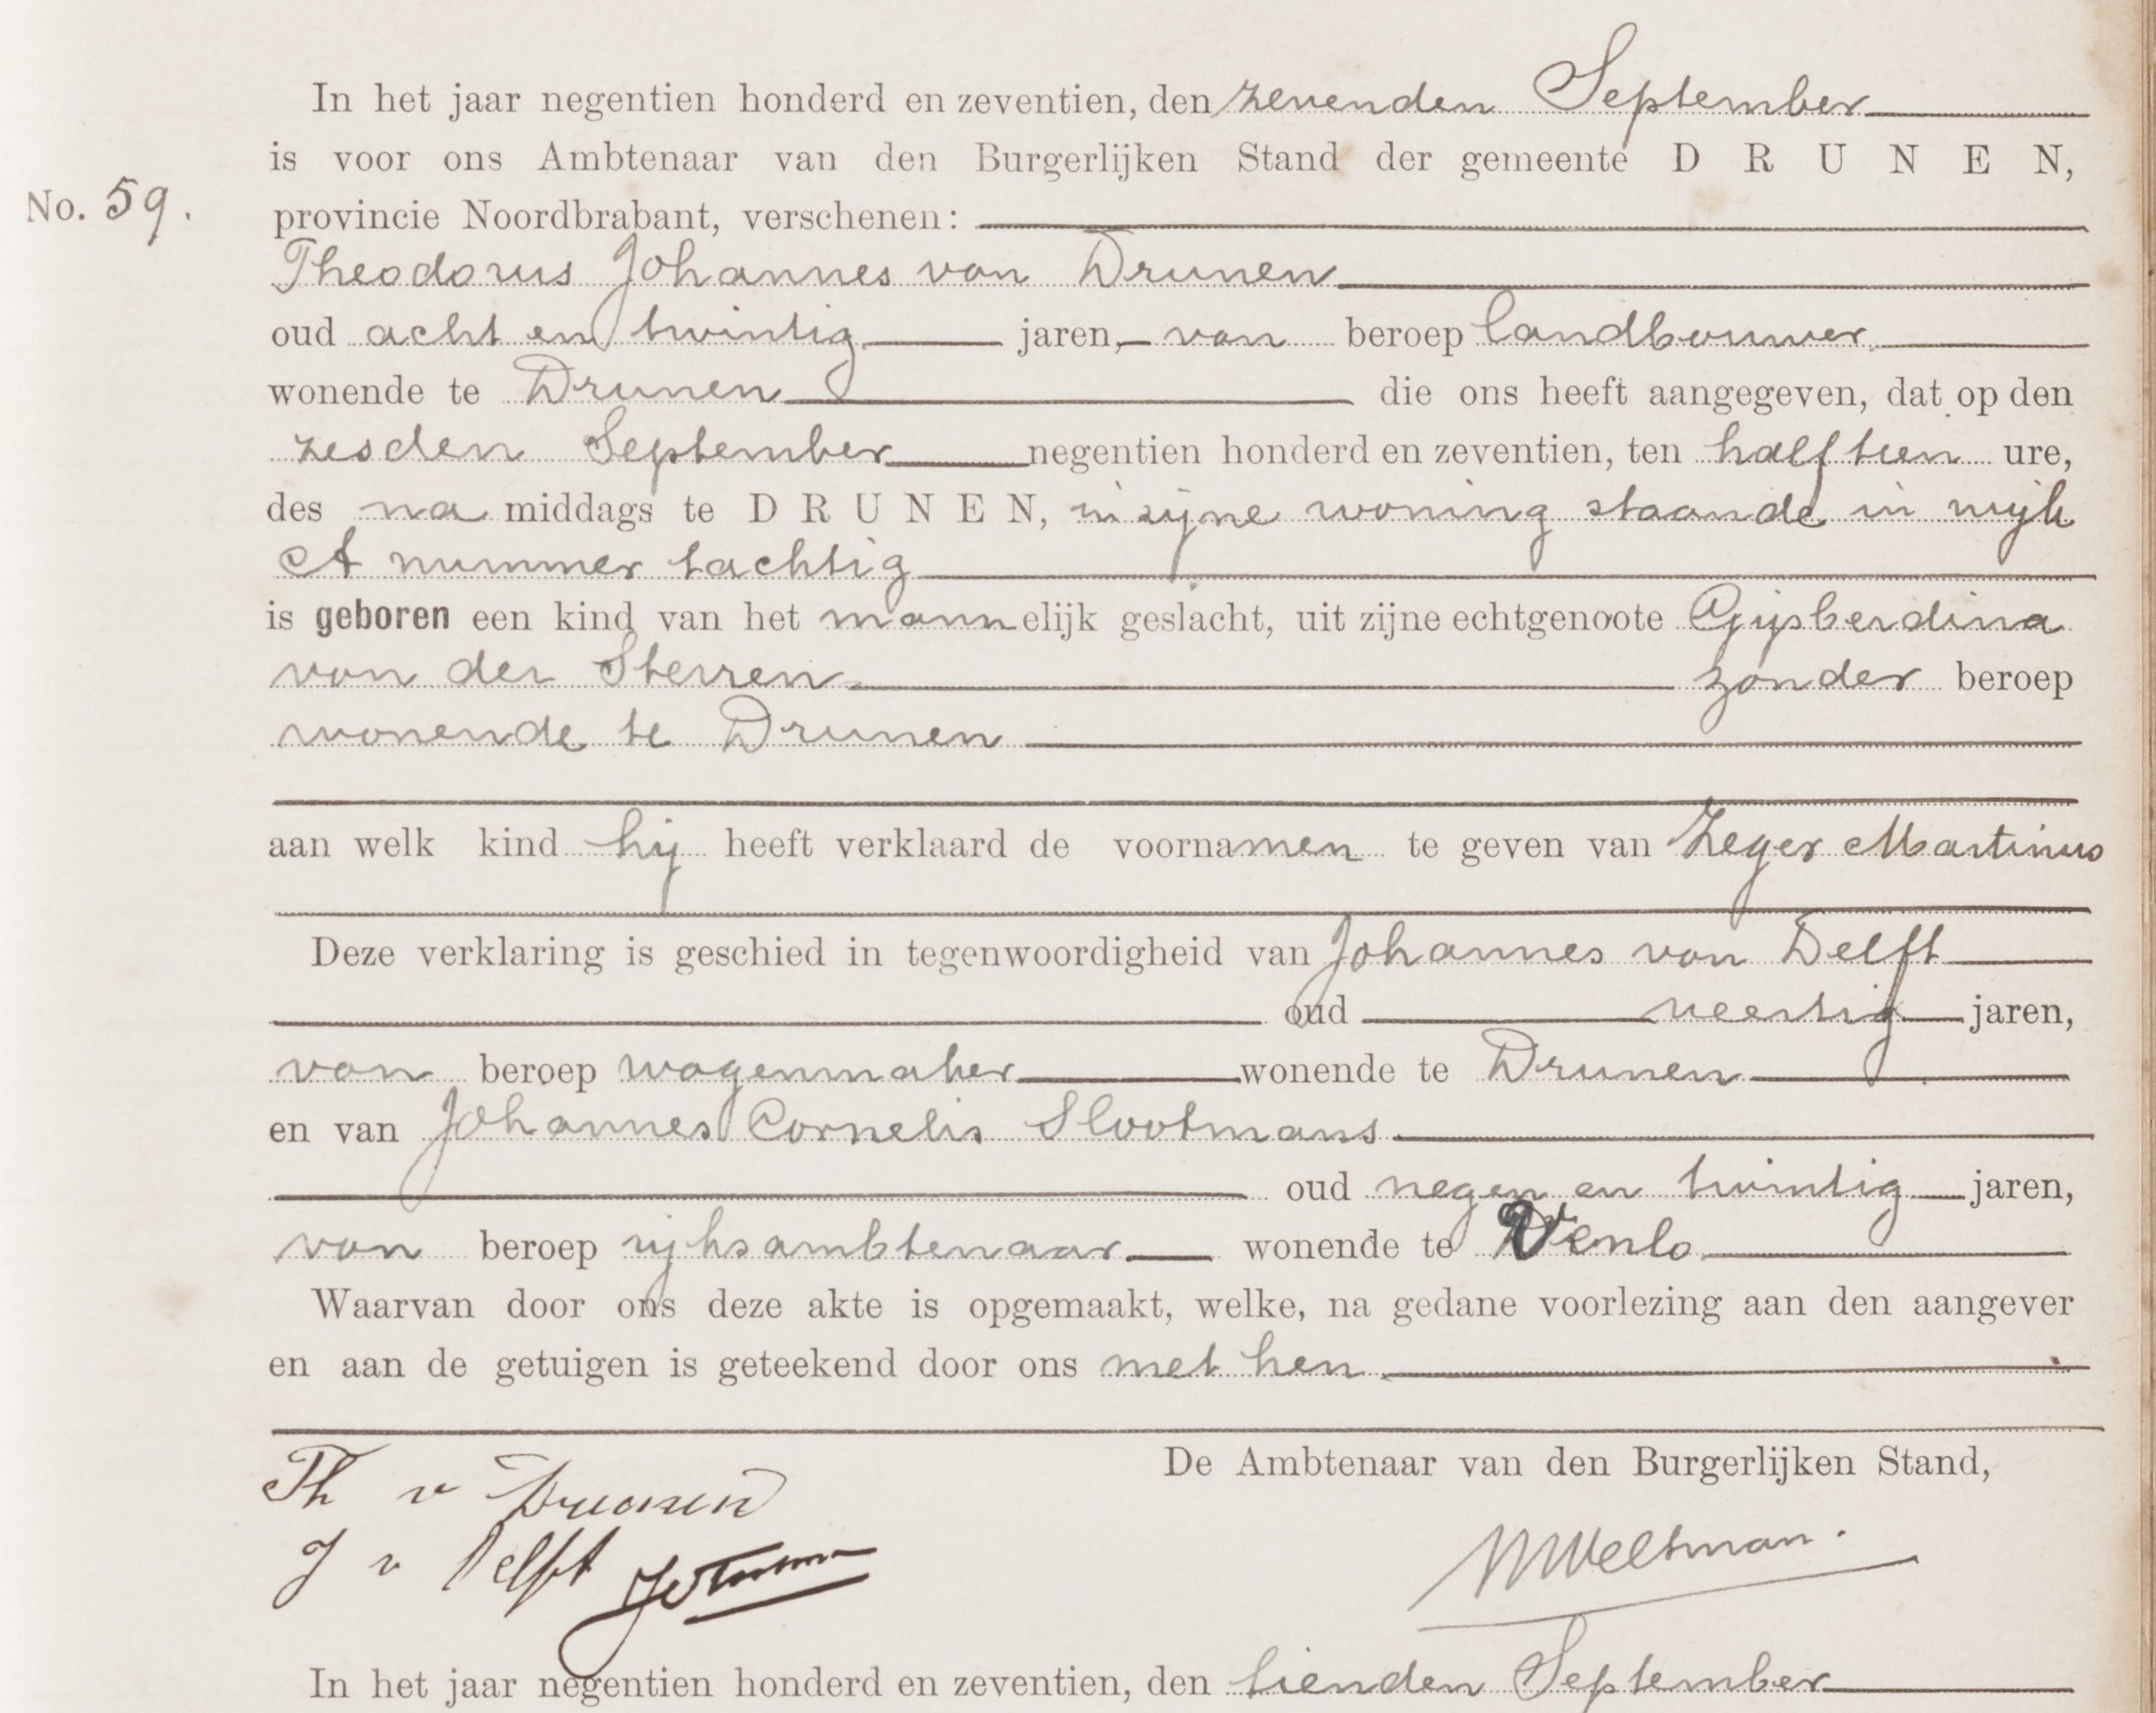 In het jaar negentien honderd en zeventien, den zevenden September
is voor ons Ambtenaar van den Burgerlijken Stand der gemeente D R U N E N,
No. 59.
provincie Noordbrabant, verschenen:
Theodorus Johannes van Drunen
oud acht en twintig jaren, van beroep landbouwer
wonende te Drunen die ons heeft aangegeven, dat op den
zesden September negentien honderd en zeventien, ten half tien ure,
des na middags te D R U N E N, in zijne woning staande in wijk
A nummer tachtig
is geboren een kind van het mannelijk geslacht, uit zijne echtgenoote Gijsberdina
van der Sterren zonder beroep
wonende te Drunen
aan welk kind hij heeft verklaard de voornamen te geven van Zeger Martinus
Deze verklaring is geschied in tegenwoordigheid van Johannes van Delft
oud veertig jaren,
van beroep wagenmaker wonende te Drunen
en van Johannes Cornelis Slootmans
oud negen en twintig jaren,
van beroep rijksambtenaar wonende te Venlo
Waarvan door ons deze akte is opgemaakt, welke, na gedane voorlezing aan den aangever
en aan de getuigen is geteekend door ons met hen.
De Ambtenaar van den Burgerlijken Stand,
Th v Drunen
J v Delft
MWeltman.
In het jaar negentien honderd en zeventien, den tienden September